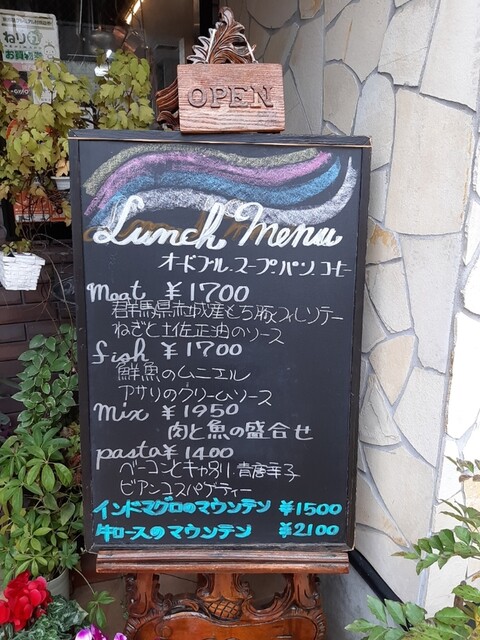 OPEN
Lunch Menu
オードブル、スープ、パン、コーヒー
Meat ¥1700
群馬県赤城産もち豚フィレソテー
ねぎと土佐正油のソース
fish ¥1700
鮮魚のムニエル
アサリのクリームソース
Mix ¥1950
肉と魚の盛合せ
pasta ¥1400
ベーコンとキャベツ、青唐辛子
ビアンコスパゲティー
インドマグロのマウンテン ¥1500
牛ロースのマウンテン ¥2100